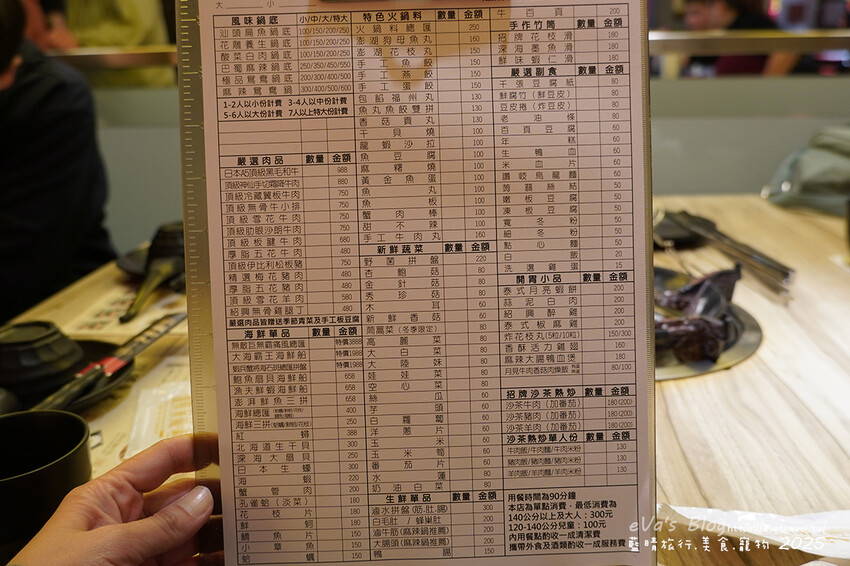 大____ 小____
風味鍋底 小/中/大/特大
汕頭扁魚鍋底 100/150/200/250
花雕養生鍋底 100/150/200/250
酸菜白肉鍋底 100/150/200/250
巴蜀麻辣鍋底 250/350/450/550
極品鴛鴦鍋底 200/300/400/500
麻辣鴛鴦鍋底 300/400/500/600
1-2人以小份計費 3-4人以中份計費
5-6人以大份計費 7人以上特大份計費
嚴選肉品 數量 金額
日本A5頂級黑毛和牛 988
頂級神仙手切霜降牛肉 880
頂級冷藏翼板牛肉 750
頂級無骨牛小排 750
頂級雪花牛肉 750
頂級肋眼沙朗牛肉
頂級板腱牛肉 680
厚脂五花牛肉 480
頂級伊比利松板豬 450
精選梅花豬肉 380
厚脂五花豬肉 380
頂級雪花羊肉 580
紹興無骨雞腿丁 480
嚴選肉品皆贈送季節青菜及手工板豆腐
海鮮單品 數量 金額
無敵巨無霸痛風總匯 特價3888
大海霸王海鮮船 特價1988
蝦兵蟹將海石斑總匯拼盤 特價1988
鮑魚扇貝海鮮船 658
漁夫鮮蝦海鮮船 658
澎湃鮮魚三拼 658
海鮮總匯 400
海鮮三拼 250
紅蟳 388
北海道生干貝 300
深海大扇貝 250
日本生蠔 300
海蝦 220
蟹管肉 200
孔雀蛤(淡菜) 180
花枝片 180
鮮蚵 180
鯛魚片 150
小章魚 150
蛤蠣 150
特色火鍋料 數量 金額
火鍋料總匯 250
澎湖狗母魚丸 160
澎湖花枝丸 150
手工魚餃 120
手工燕餃 120
手工蛋餃 120
包餡福州丸 130
魚丸魚餃雙拼 130
香菇貢丸 130
干貝燒 100
龍蝦沙拉 100
魚豆腐 100
麻糬燒 100
黃金魚蛋 100
魚丸 100
魚板 50
蟹肉棒 100
甜不辣 100
手工牛肉丸 160
新鮮蔬菜 數量 金額
野菌拼盤 220
杏鮑菇 80
金針菇 80
秀珍菇 80
木耳 80
新鮮香菇 80
茼蒿菜(冬季限定)
高麗菜 80
大白菜 80
大陸妹 80
娃娃菜 80
空心菜 80
絲瓜 60
芋頭 60
白蘿蔔 60
洋蔥片 60
玉米 60
玉米筍 60
番茄片 60
水蓮 80
奶油白菜 80
生鮮單品 數量 金額
滷水拼盤(筋.肚.腸) 300
白毛肚/蜂巢肚 200
滷牛筋(麻辣鍋推薦) 200
大腸頭(麻辣鍋推薦) 200
鴨腸 150
牛百頁 200
手作竹筒 數量 金額
招牌花枝滑 180
深海墨魚滑 180
鮮味蝦仁滑 180
嚴選副食 數量 金額
千張豆腐紙 80
鮮腐竹(鮮豆皮) 80
豆皮捲(炸豆皮) 80
老油條 80
百頁豆腐 60
年糕 60
生鴨血 60
米血片 60
讚岐烏龍麵 60
蒟蒻絲結 50
嫩板豆腐 50
凍板豆腐 50
寬冬粉 50
細冬粉 50
點心麵 50
白飯 20
洗選雞蛋 15
開胃小品 數量 金額
泰式月亮蝦餅 200
蒜泥白肉 200
紹興醉雞 200
泰式椒麻雞 200
炸花枝丸(5粒/10粒) 150/300
香酥活力雞翅 160
麻辣大腸鴨血煲 180
月見牛肉香菇肉燥飯 80/100
招牌沙茶熱炒 數量 金額
沙茶牛肉(加番茄) 180(200)
沙茶豬肉(加番茄) 180(200)
沙茶羊肉(加番茄) 180(200)
沙茶熱炒單人份 數量 金額
牛肉飯/牛肉麵/牛肉米粉 130
豬肉飯/豬肉麵/豬肉米粉 130
羊肉飯/羊肉麵/羊肉米粉 130
用餐時間為90分鐘
本店為單點消費，最低消費為
140公分以上及大人：300元
120-140公分兒童：100元
內用餐點酌收一成清潔費
攜帶外食及酒類酌收一成服務費
eVa's Blog
藍晴旅行.美食.寵物 2025